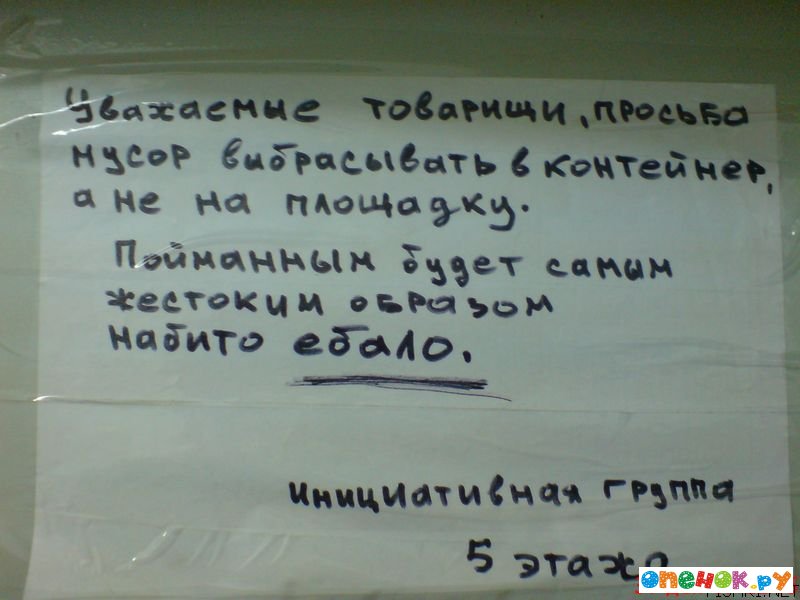 Уважаемые товарищи, просьба
мусор выбрасывать в контейнер,
а не на площадку.
Пойманным будет самым
жестоким образом
набито ебало.
инициативная группа
5 этажа
опенок.ру
FISHKI.NET